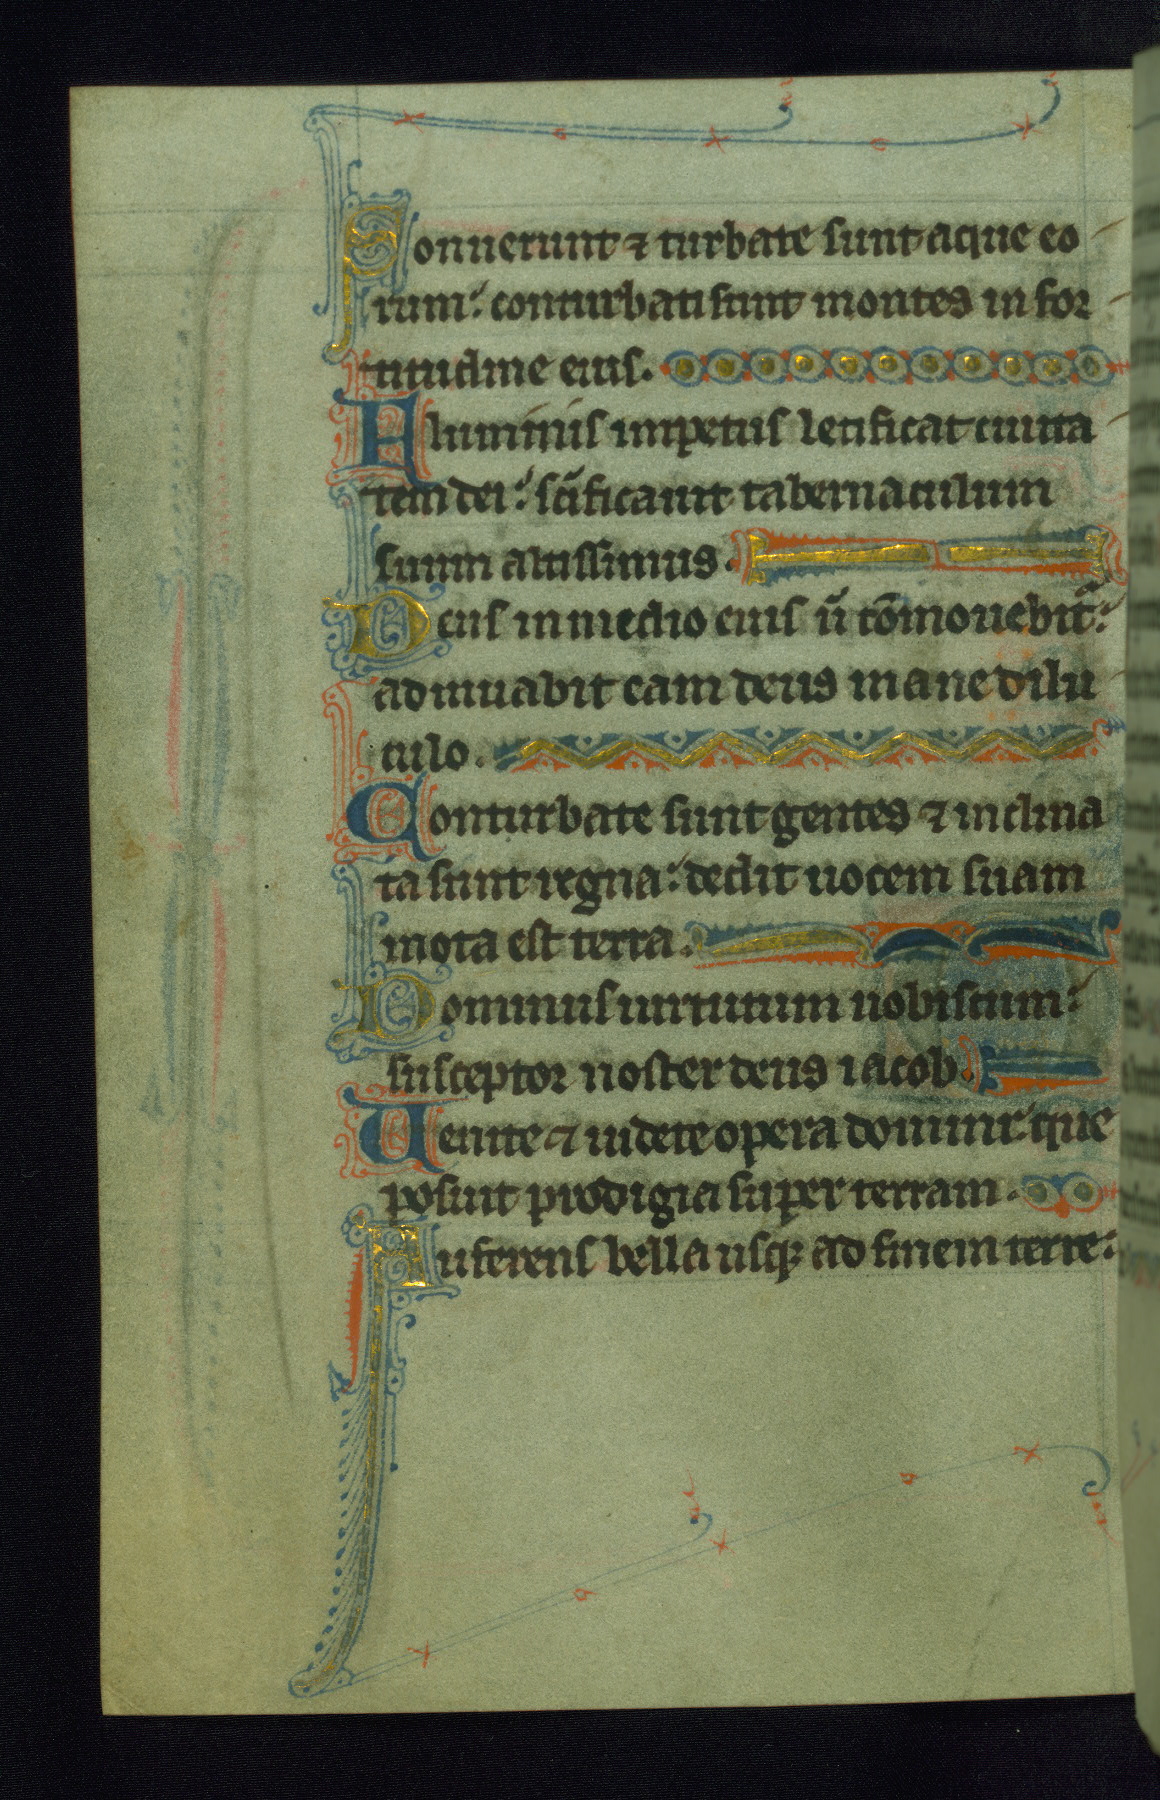 Sonuerunt ⁊ turbate sunt aque eo
rum: conturbati sunt montes in for
titudine eius.
Fluminis impetus letificat ciuita
tem dei: sc̄ificauit tabernaculum
suum altissimus.
Deus in medio eius n̄ cōmouebit᷑:
adiuuabit eam deus mane dilu
culo.
Conturbate sunt gentes ⁊ inclina
ta sunt regna: dedit uocem suam
mota est terra.
Dominus uirtutum nobiscum:
susceptor noster deus iacob.
Uenite ⁊ uidete opera domini: que
posuit prodigia super terram.
Auferens bella usqꝫ ad finem terre: